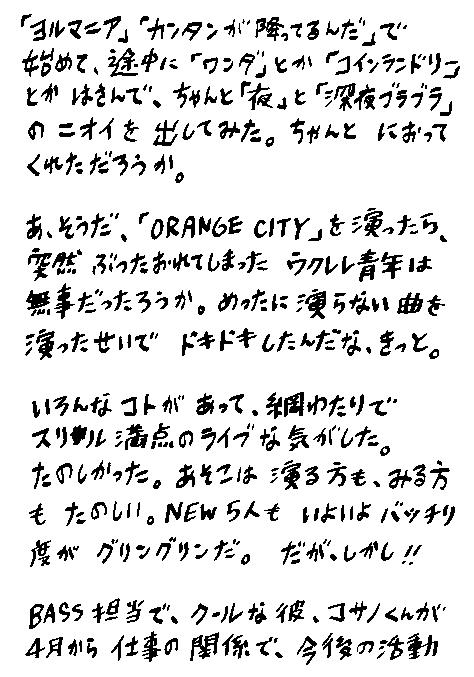 「ヨルマニア」「カンタンが降ってるんだ」で
始めて、途中に「ワンダ」とか「コインランドリー」
とか はさんで、ちゃんと「夜」と「深夜ブラブラ」
の ニオイを 出してみた。ちゃんと におって
くれただろうか。
あ、そうだ、「ORANGE CITY」を演ったら、
突然 ぶったおれてしまった ウクレレ青年は
無事だったろうか。めったに演らない曲を
演ったせいで ドキドキしたんだな、きっと。
いろんなコトが あって、綱わたりで
スリル満点のライブな気がした。
たのしかった。あそこは 演る方も、みる方
も たのしい。NEW5人も いよいよ バッチリ
度が グリングリンだ。 だが、しかし!!
BASS担当で、クールな彼、コサノくんが
4月から 仕事の関係で、今後の活動